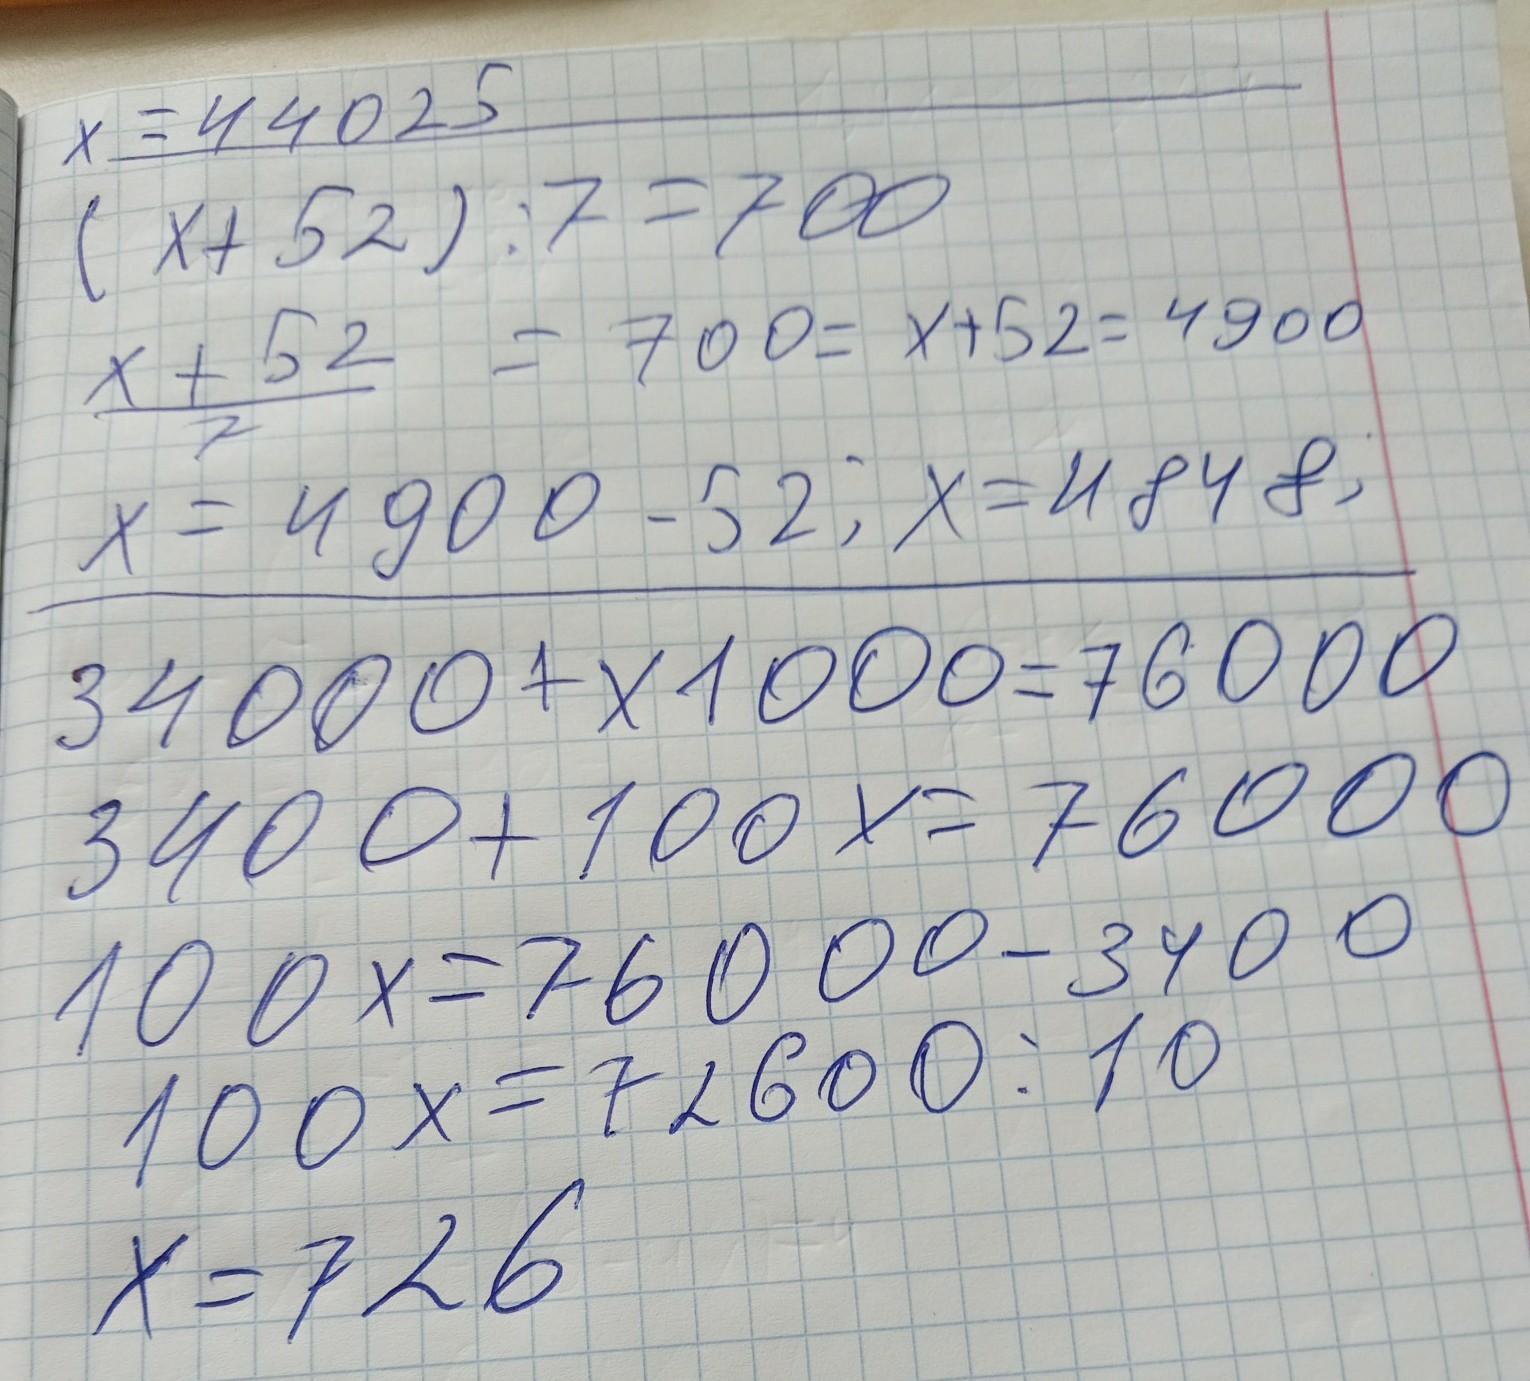 x=44025
(x+52):7=700
x+52 = 700= x+52=4900
7
x=4900-52; x=4848;
34000+x1000=76000
3400+100x=76000
100x=76000-3400
100x=72600:10
x=726